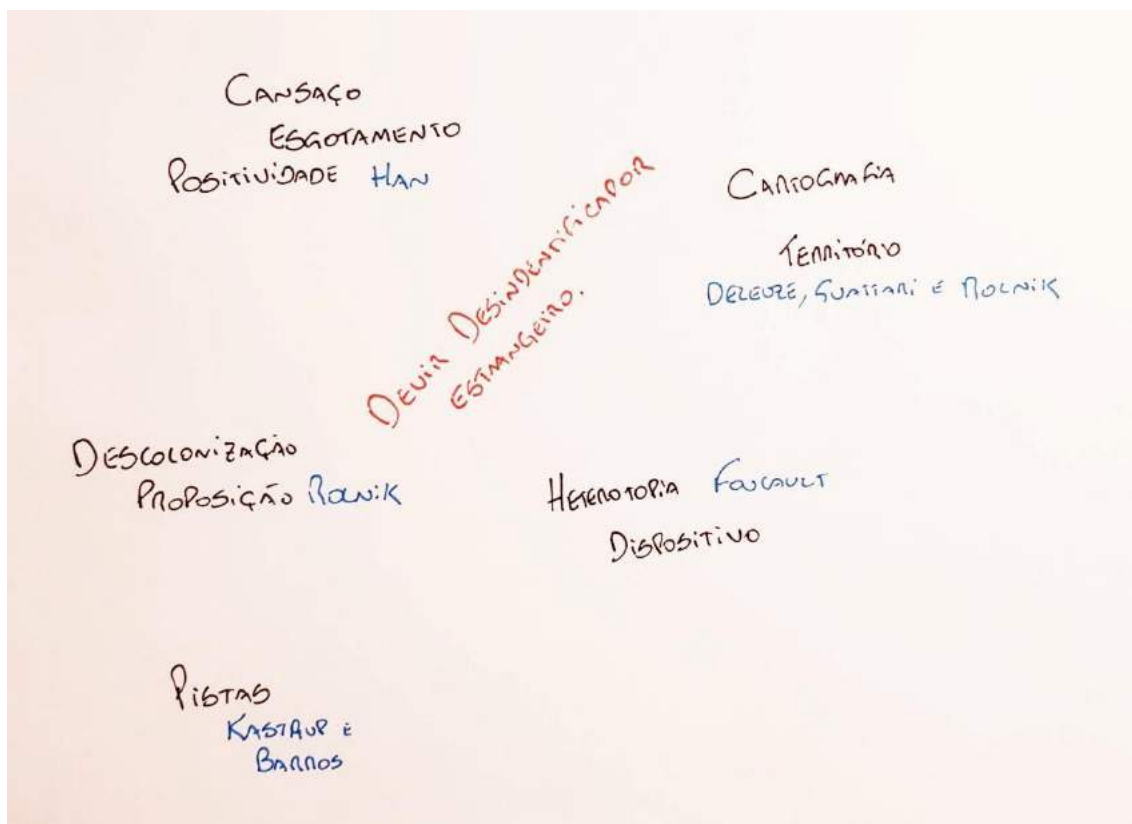 CANSAÇO
ESGOTAMENTO
POSITIVIDADE HAN
DEVIR DESINDENTIFICADOR
ESTRANGEIRO.
CARTOGRAFIA
TERRITÓRIO
DELEUZE, GUATTARI E ROLNIK
DESCOLONIZAÇÃO
PROPOSIÇÃO ROLNIK
HETEROTOPIA FOUCAULT
DISPOSITIVO
PISTAS
KASTRUP E
BARROS